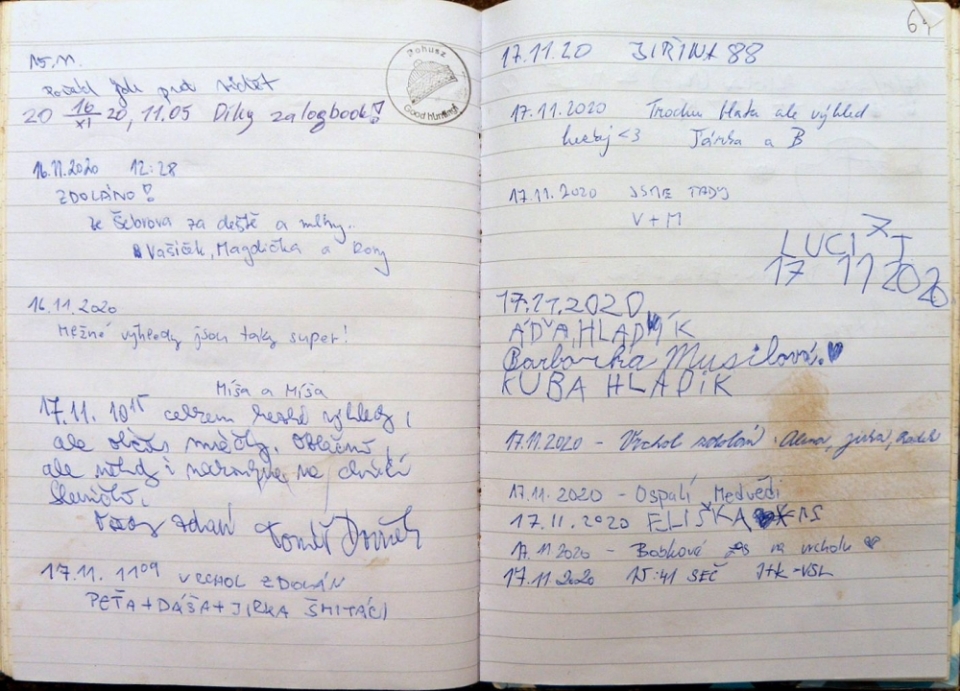 15.11.
jde pod
20 16/XI 20, 11.05 Díky za logbook!
Bohusz
Good Hunting!
16.11.2020 12:28
ZDOLÁNO!
ze Šebrova za deště a mlhy.
Vašíček, Magdička a Rony
16.11.2020
Mlžné výhledy jsou taky super!
Míša a Míša
17.11. 10¹⁵ celkem hezké výhledy,
ale občas mráčky. Oblačno,
ale někdy i na chvíli
sluníčko.
zdraví Tomáš
17.11. 11⁰⁹ VRCHOL ZDOLÁN
PEŤA+DÁŠA+JIRKA ŠMITÁCI
64
17.11.20 JIŘINA 88
17.11.2020 Trochu mlha ale výhled
hezkej <3 Jánka a B
17.11.2020 JSME TADY
V+M
LUCI J
17 11 2020
17.11.2020
ÁĎA HLADÍK
Barborka Musilová ♥
KUBA HLADÍK
17.11.2020 - Vrchol zdolán Alena, Jirka, Radek
17.11.2020 - Ospalí Medvědi
17.11.2020 ELIŠKA
17.11.2020 - Bobkové na vrcholu ♥
17.11.2020 15:41 SEČ J+K-VSL